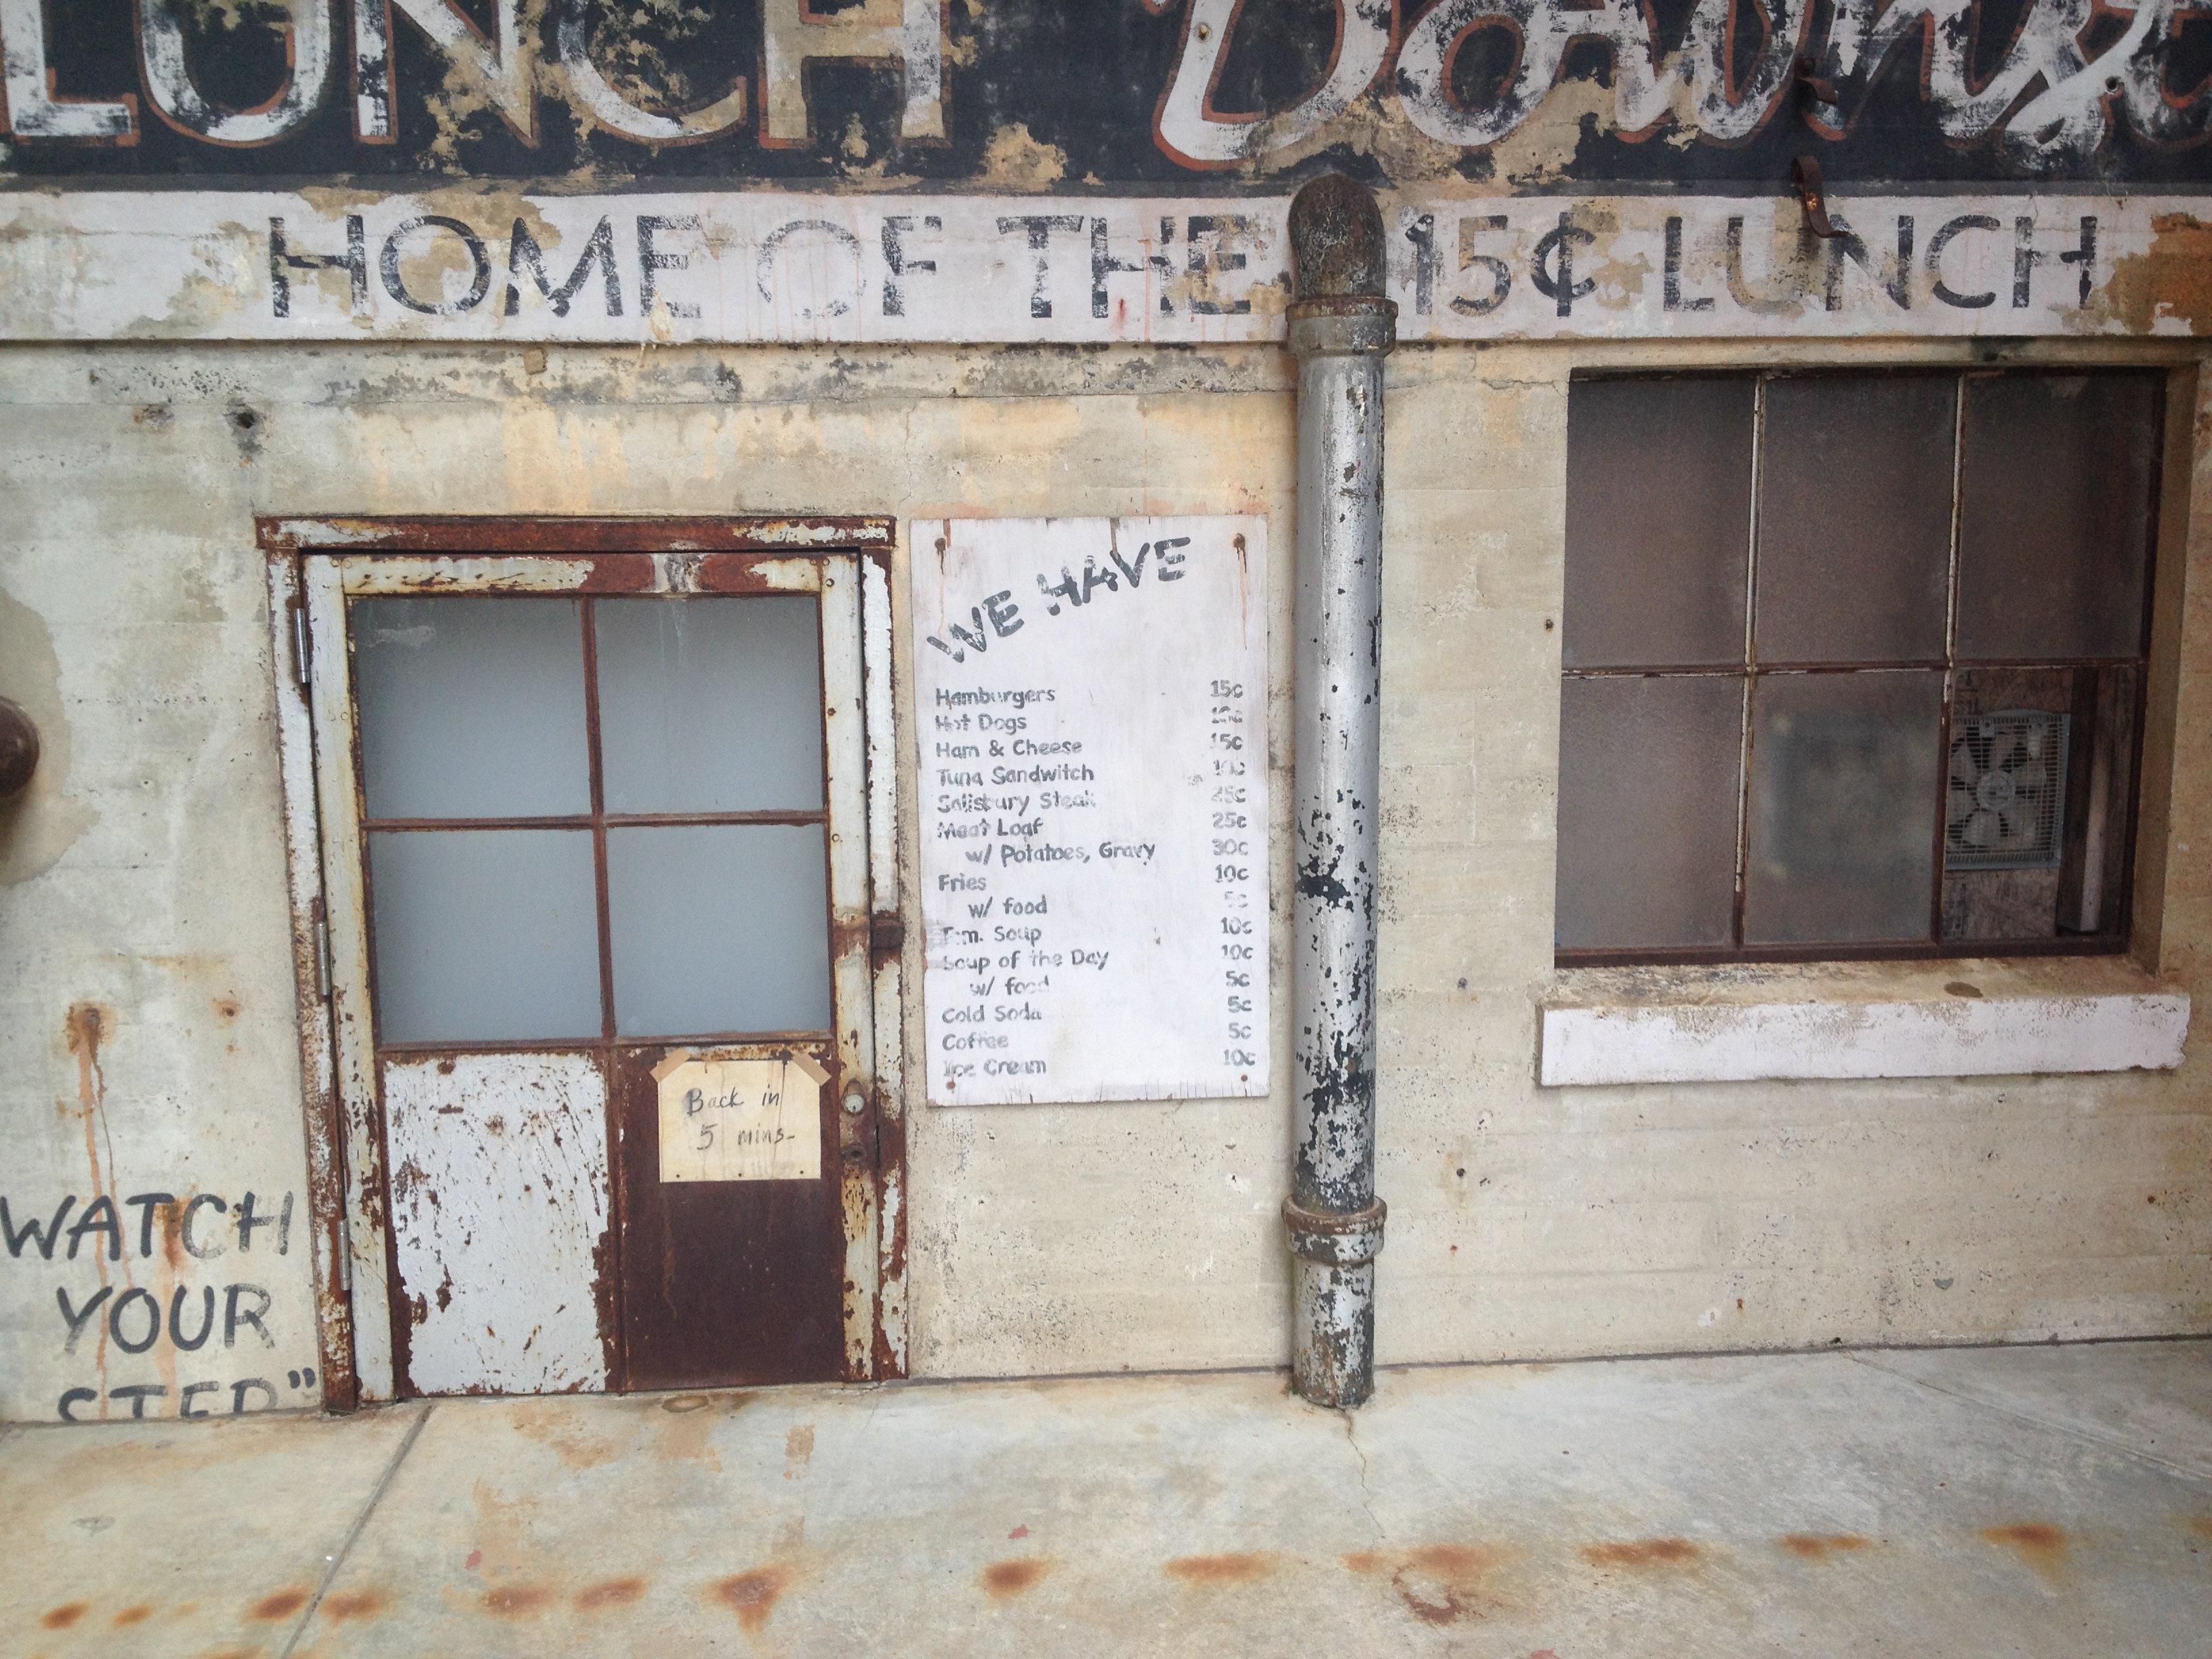 LUNCH
HOME OF THE 15¢ LUNCH
WE HAVE
Hamburgers 15c
Hot Dogs
Ham & Cheese 15c
Tuna Sandwitch 10c
Salisbury Steak 25c
Meat Loaf 25c
w/ Potatoes, Gravy 30c
Fries 10c
w/ food 5c
Tom. Soup 10c
Soup of the Day 10c
w/ food 5c
Cold Soda 5c
Coffee 5c
Ice Cream 10c
Back in
5 mins-
WATCH
YOUR
STEP"